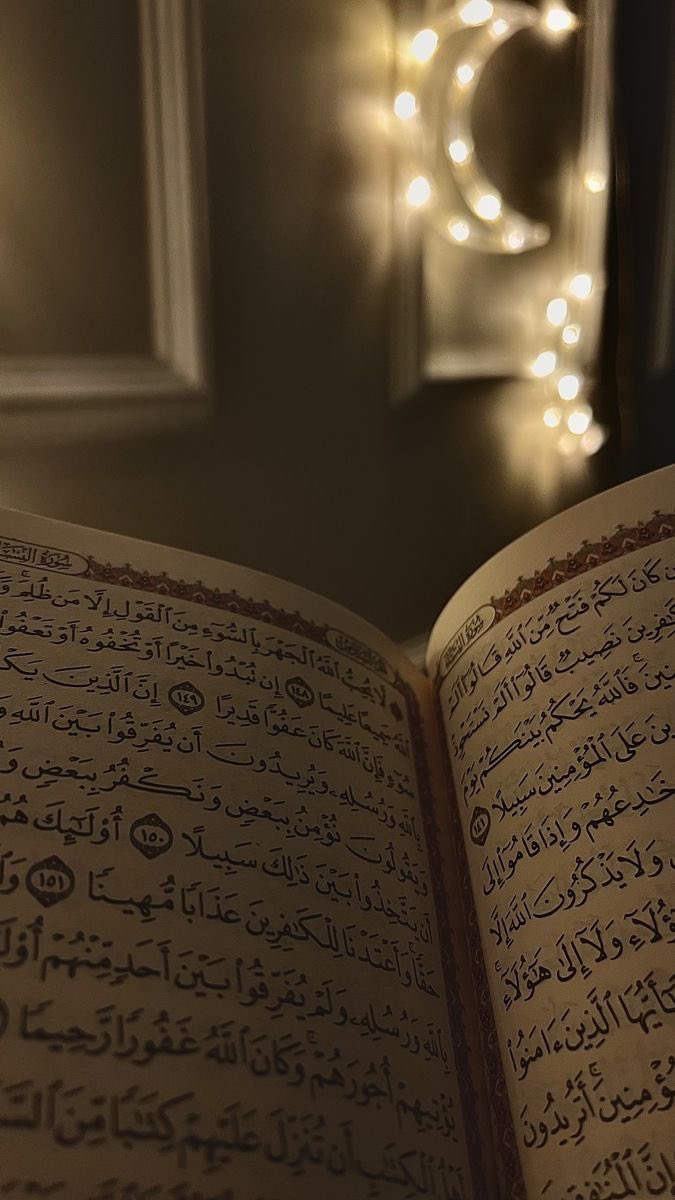 سُورَةُ النِّسَاءِ
كَانَ لَكُمْ فَتْحٌ مِّنَ ٱللَّهِ قَالُوٓا۟ أَلَمْ
نَصِيبٌ قَالُوٓا۟ أَلَمْ نَسْتَحْوِذْ
فَٱللَّهُ يَحْكُمُ بَيْنَكُمْ يَوْمَ
عَلَى ٱلْمُؤْمِنِينَ سَبِيلًا ١٤١
خَٰدِعُهُمْ وَإِذَا قَامُوٓا۟ إِلَى
وَلَا يَذْكُرُونَ ٱللَّهَ إِلَّا
وَلَآ إِلَىٰ هَٰٓؤُلَآءِ ۚ
يَٰٓأَيُّهَا ٱلَّذِينَ ءَامَنُوا۟
أَتُرِيدُونَ
إِنَّ
سُورَةُ النِّسَاءِ
۞ لَّا يُحِبُّ ٱللَّهُ ٱلْجَهْرَ بِٱلسُّوٓءِ مِنَ ٱلْقَوْلِ إِلَّا مَن ظُلِمَ ۚ
ٱللَّهُ سَمِيعًا عَلِيمًا ١٤٨ إِن تُبْدُوا۟ خَيْرًا أَوْ تُخْفُوهُ أَوْ تَعْفُوا۟
سُوٓءٍ فَإِنَّ ٱللَّهَ كَانَ عَفُوًّا قَدِيرًا ١٤٩ إِنَّ ٱلَّذِينَ
بِٱللَّهِ وَرُسُلِهِۦ وَيُرِيدُونَ أَن يُفَرِّقُوا۟ بَيْنَ ٱللَّهِ
وَيَقُولُونَ نُؤْمِنُ بِبَعْضٍ وَنَكْفُرُ بِبَعْضٍ
أَن يَتَّخِذُوا۟ بَيْنَ ذَٰلِكَ سَبِيلًا ١٥٠ أُو۟لَٰٓئِكَ هُمُ
حَقًّا ۚ وَأَعْتَدْنَا لِلْكَٰفِرِينَ عَذَابًا مُّهِينًا ١٥١
بِٱللَّهِ وَرُسُلِهِۦ وَلَمْ يُفَرِّقُوا۟ بَيْنَ أَحَدٍ مِّنْهُمْ
يُؤْتِيهِمْ أُجُورَهُمْ ۗ وَكَانَ ٱللَّهُ غَفُورًا رَّحِيمًا
أَهْلُ ٱلْكِتَٰبِ أَن تُنَزِّلَ عَلَيْهِمْ كِتَٰبًا مِّنَ